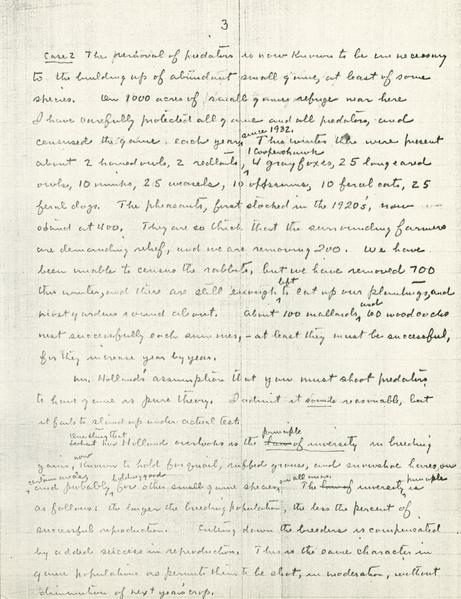 3
Case 2 The removal of predators is now known to be unnecessary
to the building up of abundant small game, at least of some
species. On 1000 acres of small game refuge near here
I have carefully protected all game and all predators, and
censused the game each year since 1932. This winter there were present
about 2 horned owls, 2 redtails, 1 Coopershawk, 4 gray foxes, 25 long eared
owls, 10 minks, 25 weasels, 10 opossums, 10 feral cats, 25
feral dogs. The pheasants, first stocked in the 1920's, now
stand at 400. They are so thick that the surrounding farmers
are demanding relief, and we are removing 200. We have
been unable to census the rabbits, but we have removed 700
this winter, and there are still enough left to eat up our plantings, and
ninety gardens round about. About 100 mallards and 60 wood ducks
nest successfully each summer, - at least they must be successful,
for they increase year by year.
Mr. Holland's assumption that you must shoot predators
to have game is pure theory. I admit it sounds reasonable, but
it fails to stand up under actual test.
One thing that Mr Holland overlooks is the principle of inversity in breeding
gains, now known to hold for quail, ruffed grouse, and snowshoe hares, on
certain areas, and probably holding good for other small game species, on all areas. The principle of inversity is
as follows: the larger the breeding population, the less the percent of
successful reproduction. Cutting down the breeders is compensated
by added success in reproduction. This is the same character in
game populations as permits them to be shot, in moderation, without
diminution of next year's crop.